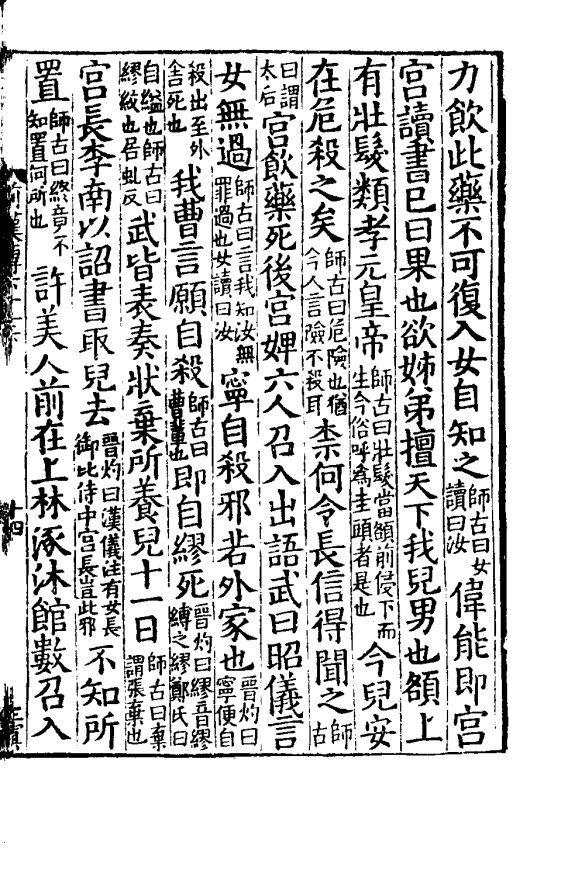 力飲此藥不可復入女自知之師古曰女讀曰汝偉能即宮
宮讀書已曰果也欲姊弟擅天下我兒男也頟上
有壯髮類孝元皇帝師古曰壯髮當頟前侵下而生今俗呼爲圭頭者是也今兒安
在危殺之矣師古曰危險也猶今人言險不殺耳柰何令長信得聞之師古
曰謂太后宮飲藥死後宮婢六人召入出語武曰昭儀言
女無過師古曰言我知汝無罪過也女讀曰汝寧自殺邪若外家也晉灼曰寧便自
殺出至外舍死也我曹言願自殺師古曰曹輩也即自繆死晉灼曰繆音繆縛之繆鄭氏曰
自縊也師古曰繆絞也居虬反武皆表奏狀棄所養兒十一日師古曰棄謂張棄也
宮長李南以詔書取兒去晉灼曰漢儀注有女長御比侍中宮長豈此邪不知所
置師古曰終竟不知置何所也許美人前在上林涿沐館數召入
十四